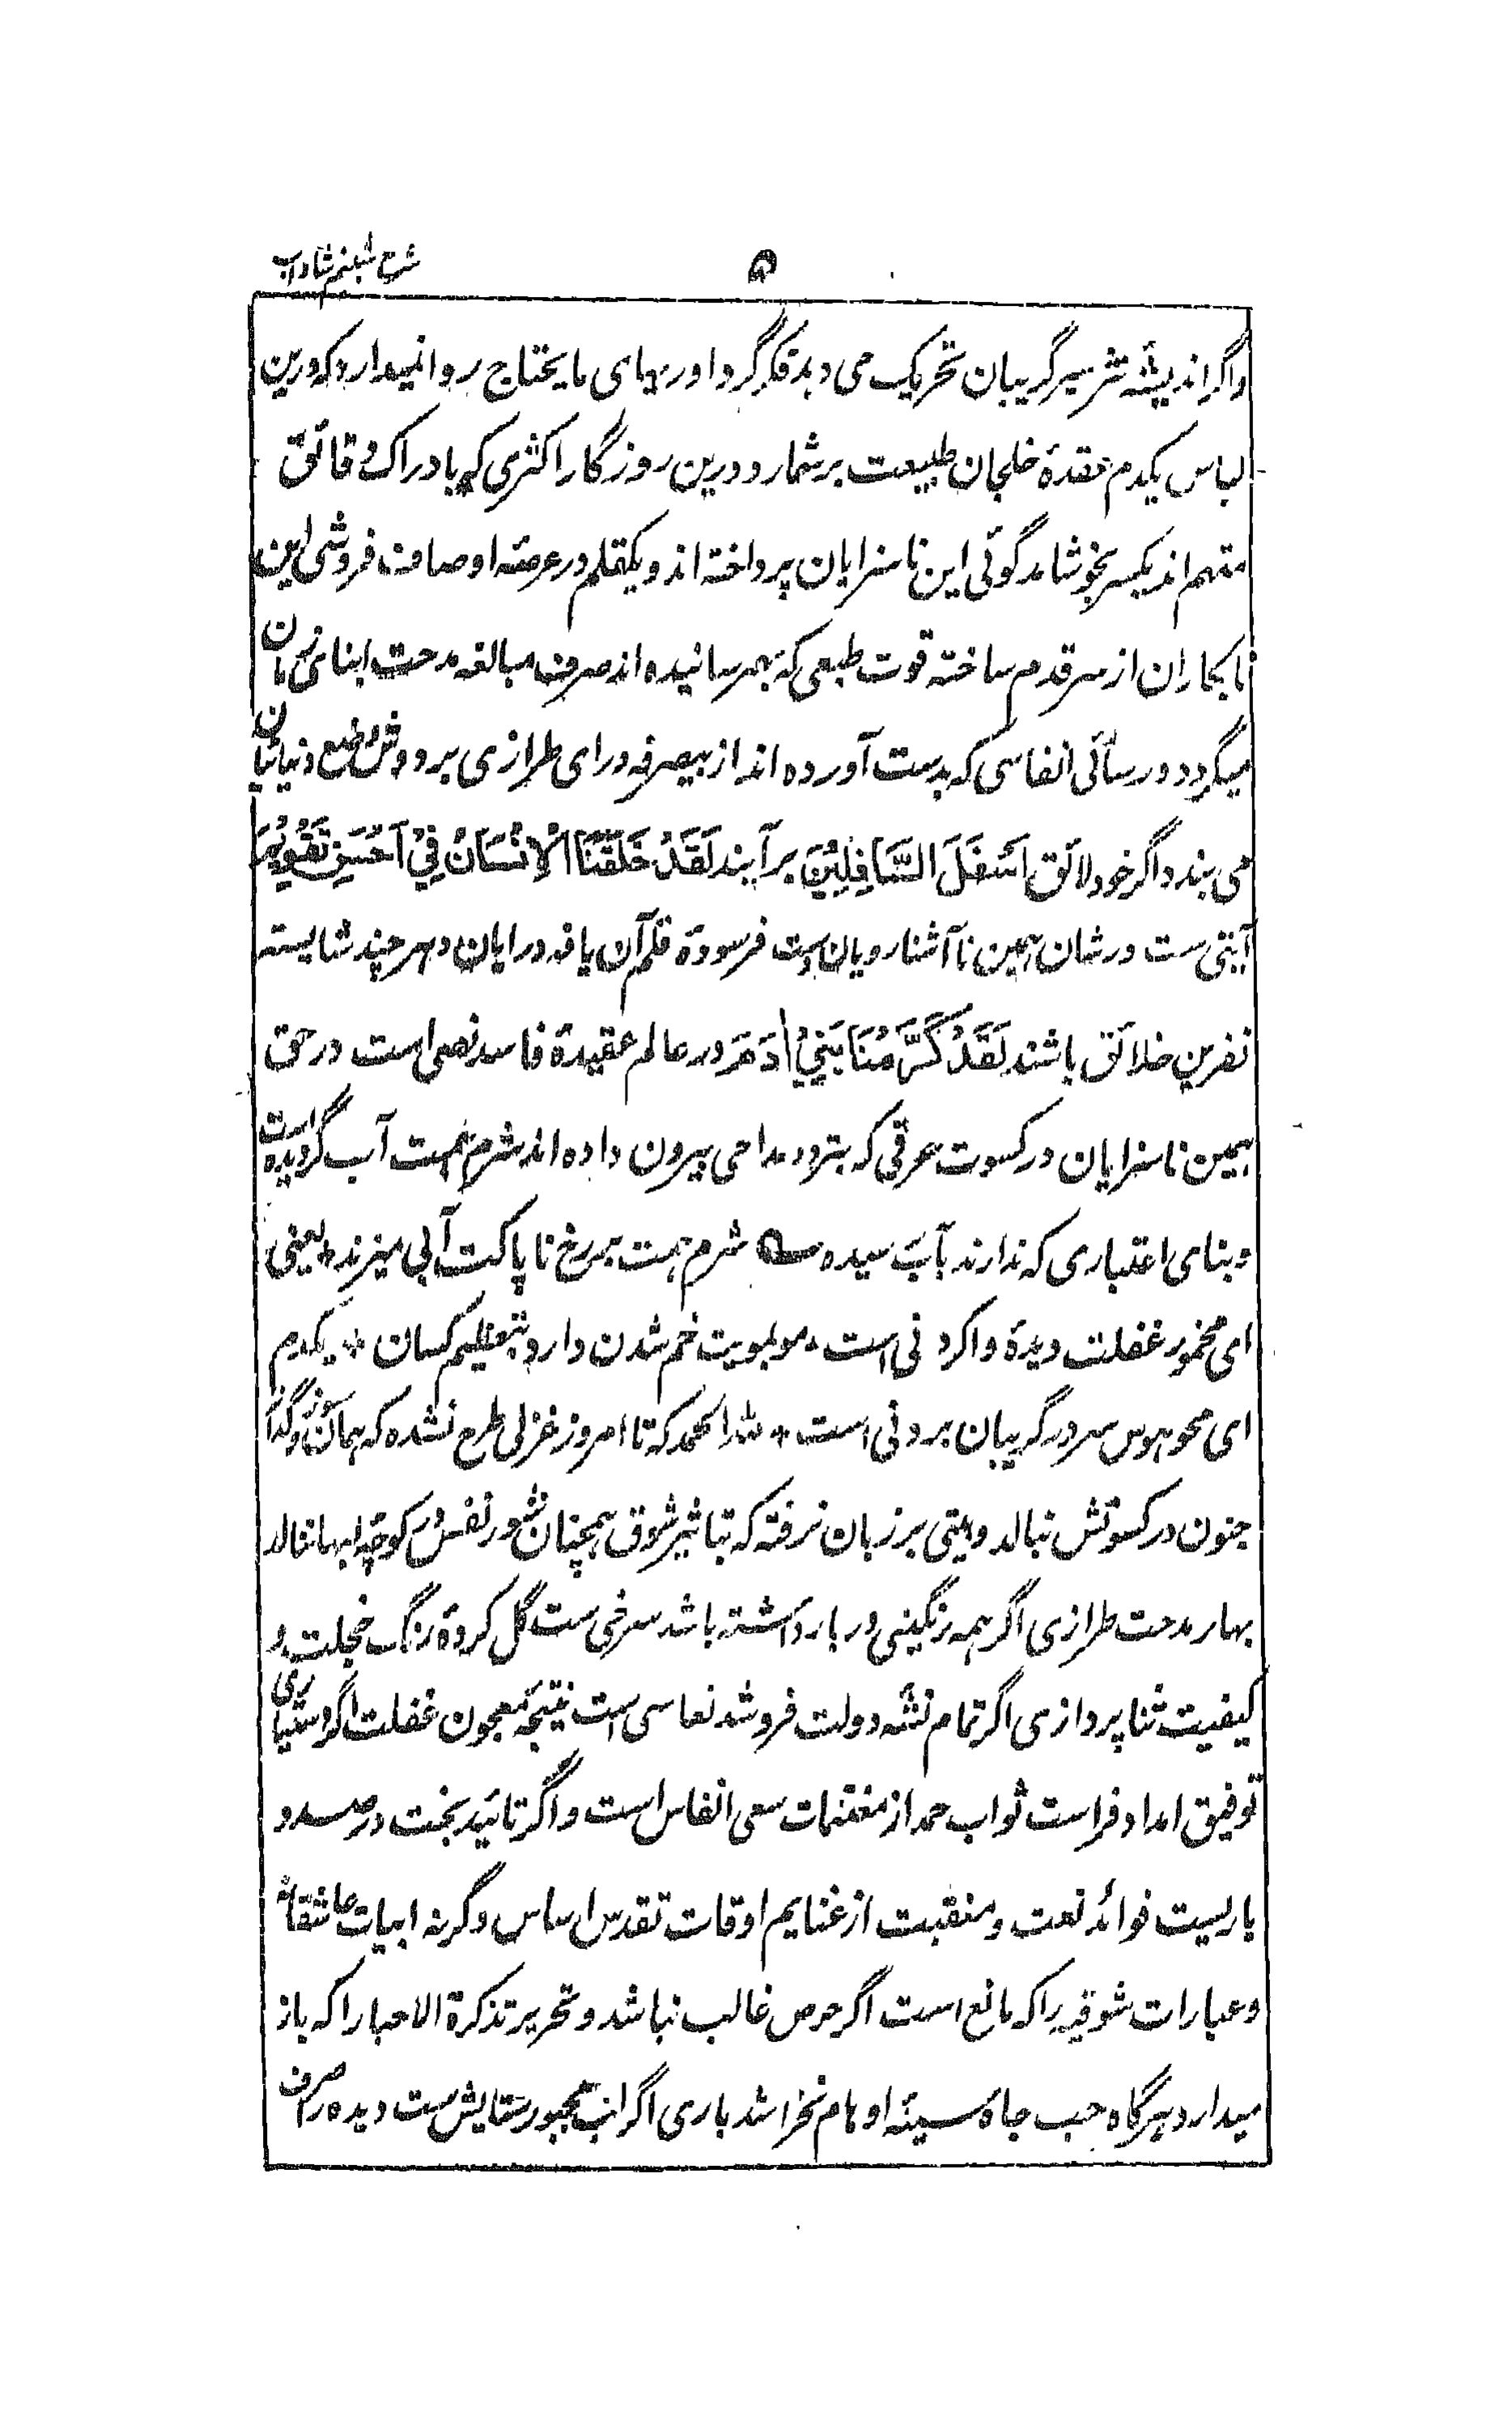 شرح شبنم شاداب
۵
واگر اندیشه سر بگریبان تحریک می دهد فکر گرد آوریهای مایحتاج روا نمیدارد که درین
لباس یکدم عقدۀ خلجان طبیعت برشمارد و درین روزگار اکثری که بادراک دقائق
متهم اند یکسر بخوشامد گوئی این ناسزایان پرداخته اند و یکقلم در عرصۀ اوصاف فروشی این
نابکاران از سر قدم ساخته قوت طبعی که بهمرسانیده اند صرف مبالغه مدحت ابنای زمان
میگردد و رسائی انفاسی که بدست آورده اند از بیصرفه درای طرازی بر دوش وضع دنیائیان
می بندد اگر خود لائق اَسْفَلَ السَّافِلِیْنَ برآیند لَقَدْ خَلَقْنَا الْاِنْسَانَ فِیْ اَحْسَنِ تَقْوِیْمٍ
آیتی ست در شان همین ناآشنا رویان ست فرسودۀ قلم آن یافه درایان و هرچند شایسته
نفرین خلائق باشند لَقَدْ کَرَّمْنَا بَنِیْ اٰدَمَ در عالم عقیدۀ فاسد نصی است در حق
همین ناسزایان در کسوت عرقی که بتردد مداحی بیرون داده اند شرم همت آب گردیده است
و بنای اعتباری که ندارند بآب رسیده ـه شرم همت بر رخ ناپاکت آبی میزند * یعنی
ای مخمور غفلت دیدۀ واکردنی است * مو بمویت خم شدن دارد بتعظیم کسان * یکدم
ای محو هوس سر در گریبان بردنی است * لله الحمد که تا امروز غزلی طرح نشده که همان سوز و گداز
جنون در کسوتش نبالد و بیتی بر زبان نرفته که بتاثیر شوق همچنان شور نفس در کوچۀ لبها ننالد
بهار مدحت طرازی اگر همه رنگینی در بار داشته باشد سرخی ست گل کردۀ رنگ خجلت و
کیفیت ثنا پردازی اگر تمام نشۀ دولت فروشد نعاسی است نتیجۀ معجون غفلت اگر دستیاری
توفیق امداد فراست ثواب حمد از مغتنمات سعی انفاس است و اگر تائید بخت در صدد
یاریست فوائد نعت و منقبت از غنایم اوقات تقدس اساس وگرنه ابیات عاشقانه
و عبارات شوقیه را که مانع است اگر حرص غالب نباشد و تحریر تذکرة الاحبا را که باز
میدارد هرگاه حب جاه سینۀ اوهام نخراشد باری اگر لب مجبور ستایش ست دیده را صرف